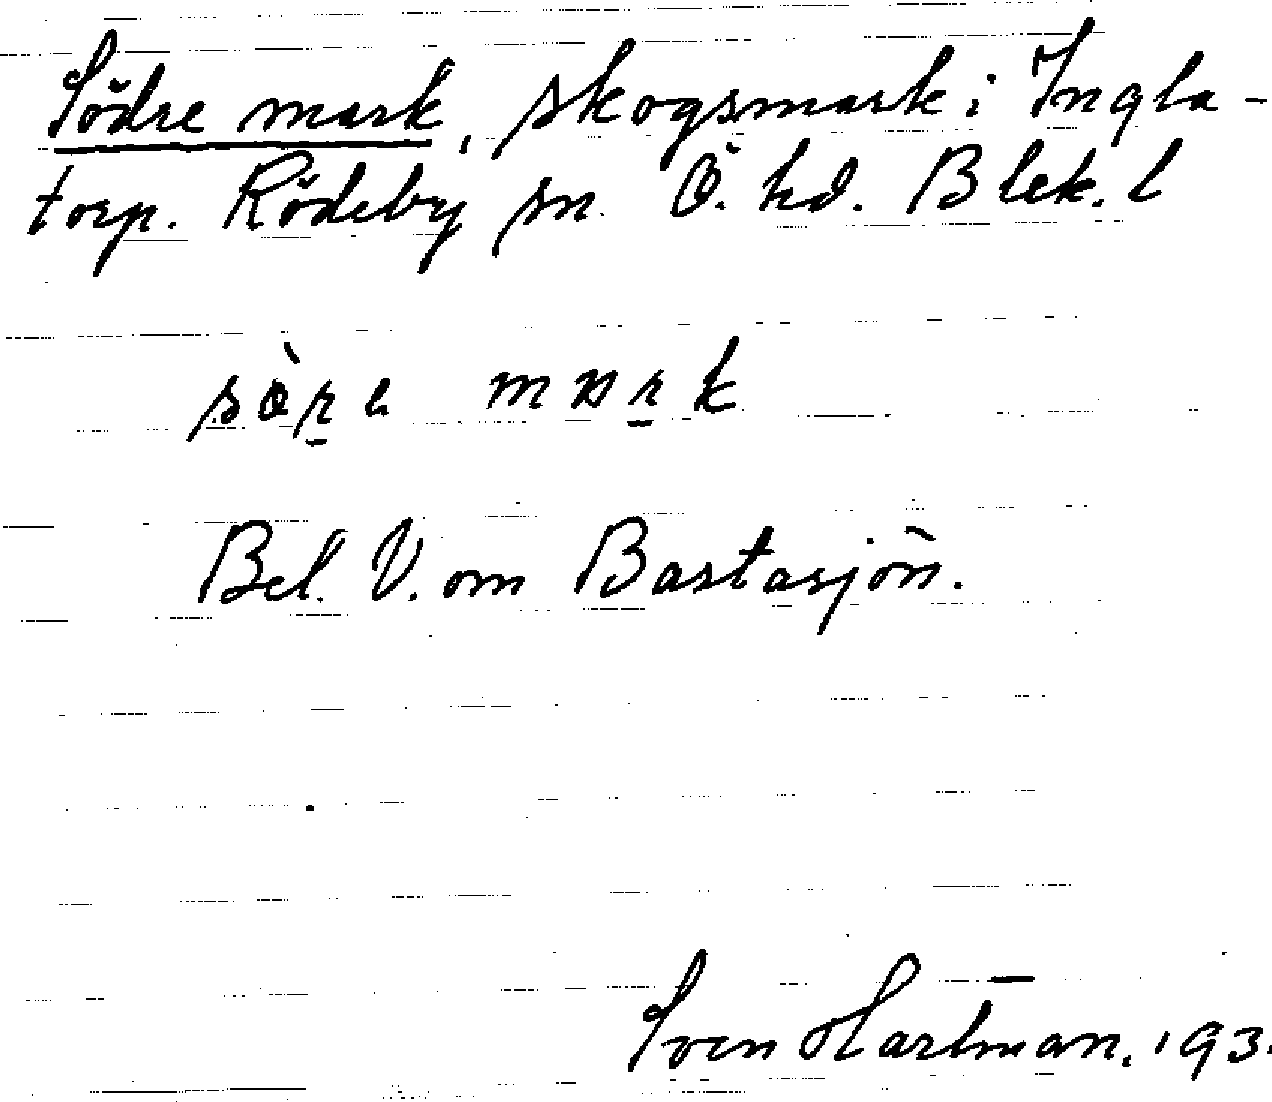 Södre mark, skogsmark i Ingla-
torp. Rödeby sn. Ö. hd. Blek. l
Bel. V. om Bastasjön.
Sven Hartman. 193